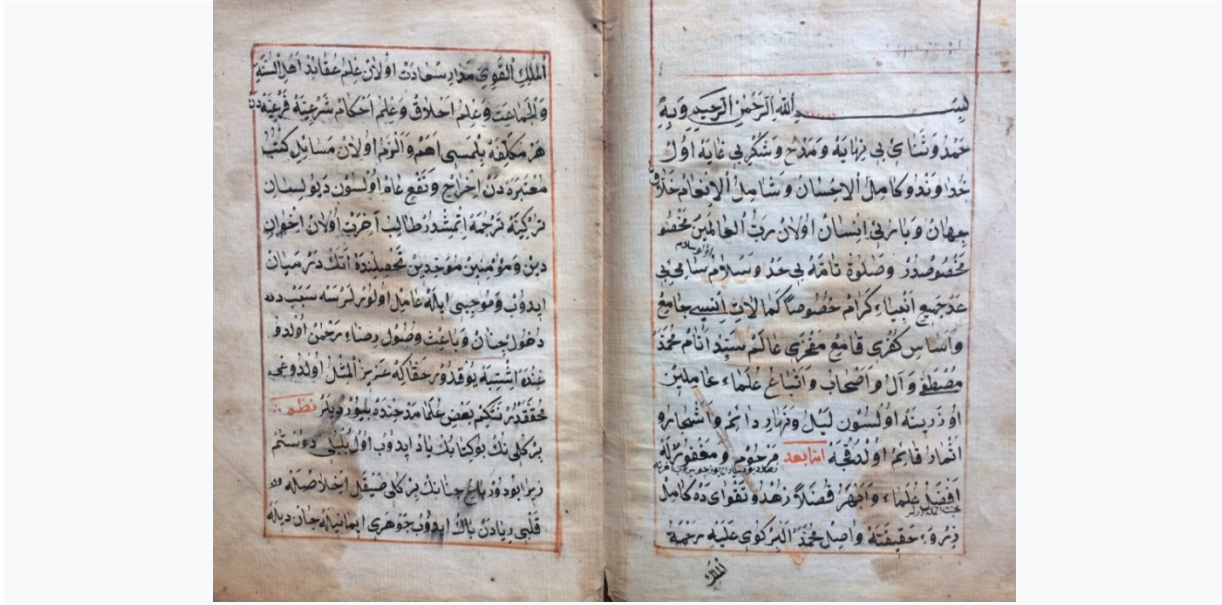 بسم الله الرحمن الرحيم وبه
حمد وثناى بى نهايه ومدح وشكر بى غايه اول
خداوند و كامل الاحسان وشامل الانعام خلاق
جهان وبارئ انسان اولان رب العالمين
مخصوصدر وصلوة تامه بى حد وسلام سامئ بى
عدد جميع انبياء كرام خصوصا كمالات انسيى جامع
واساس كفرى قامع مفخرى عالم سيد انام محمد
مصطفى وآل واصحاب واتباع علماء عاملين
اوزرينه اولسون ليل ونهار دائم واشجار و
اثمار قائم اولدقجه اما بعد مرحوم ومغفور له
افضل علماء وابهر فضلا زهد وتقواى ده كامل
ذروۀ حقيقته واصل محمد البركوى عليه رحمة
الملك
الملك القوى مدار سعادت اولان علم عقائد اهل السنة
والجماعت وعلم اخلاق وعلم احكام شرعيۀ فرعيه دن
هر مكلفه بلمسى اهم والزم اولان مسائل كتب
معتبره دن اخراج ونفع عام اولسون ديو لسان
تركيه ترجمه اتمشدر طالب آخرت اولان اخوان
دين ومؤمنين موحدين تحصيلنده آنك در ميان
ايدوب وموجبى ايله عامل اولورلرسه سبب
دخول جنان وباعث وصول رضاء رحمن اولدو
غنده اشتبه يوقدور حقا كه عزيز المثل اولدوغى
محققدر نتكيم بعض علما مدحنده بيلور ديلر نظم
بركلى نك بو كتابك ياد ايدوب اول بلبلى دوستم
زيرا بودور باغ جنانك بركلى صيقل اخلاصله
قلبى ريادن پاك ايدوب جوهرى ايمانيله جان ديله